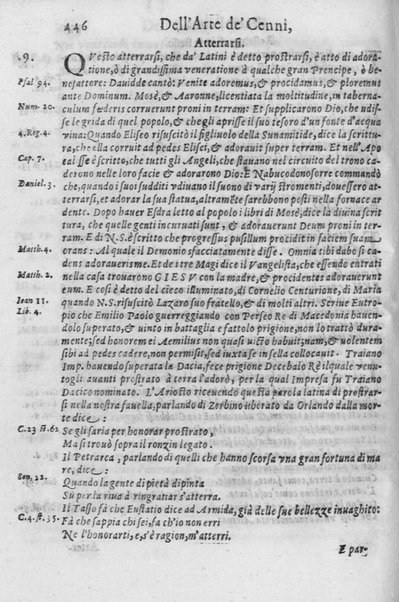 446 Dell'Arte de' Cenni,
Atterrarsi.
.9. Questo atterrarsi, che da' Latini è detto prostrarsi, è atto di adora-
tione, ò di grandissima veneratione à qualche gran Prencipe, ò be-
Psal 94. nefattore: Dauidde cantò: Venite adoremus, & procidamus, & ploremus
ante Dominum. Mosè, & Aaronne, licentiata la moltitudine, in taberna-
Num. 20. culum fœderis corruerunt proni in terram: Et supplicarono Dio, che udis-
se le grida di quel popolo, & che gli aprisse il suo tesoro d'un fonte d'acqua
4. Reg. 4. viua: Quando Eliseo risuscitò il figliuolo della Sunamitide, dice la scrittu-
ra, che la corruit ad pedes Elisei, & adorauit super terram. Et nell'Apo
Cap. 7. cal sse è scritto, che tutti gli Angeli, che stauano nel circuito del trono ca-
derono nelle loro facie & adorarono Dio: E Nabucodonosorre commandò
Daniel. 3. che, quando i suoi sudditi vdiuano il suono di varij stromenti, douessero at-
terrarsi, et adorar la sua statua, altramẽte sarebbono posti nella fornace ar
dente. Dopo hauer Esdra letto al popolo i libri di Mosè, dice la diuina scrit
tura, che quelle genti incuruati sunt, & adorauerunt Deum proni in ter-
ram. E di N.S. è scritto che progressus pusillum procidit in faciem suam
Matth. 4. orans: Al quale il Demonio sfacciatamente disse. Omnia tibi dabo si ca-
dens adoraueris me. Et de i tre Magi dice il Vangelista, che essendo entrati
Matth. 2. nella casa trouarono GIESV con la madre, & procidentes adorauerunt
eum. E così è detto del cieco illuminato, di Cornelio Centurione, di Maria
Ioan 11. quando N.S. risuscitò Lazaro suo fratello, & di molti altri. Scriue Eutro-
Lib. 4. pio che Emilio Paolo guerreggiando con Perseo Re di Macedonia hauen-
dolo superato, & uinto in battaglia e fattolo prigione, non lo trattò dura-
mente; sed honorem ei Aemilius non quasi uicto habuit; nam, & uolentem
sibi ad pedes cadere, non permisit, sed iuxta se in sella collocauit. Traiano
Imp. hauendo superata la Dacia, fece prigione Decebalo Rè il quale venu-
togli auanti prostrato à terra l'adorò, per la qual Impresa fu Traiano
Dacico nominato. L'Ariosto riceuendo questa parola latina di prostrar-
si nella nostra fauella, parlando di Zerbino liberato da Orlando dalla mor-
te dice:
C. 23 st. 62 Se gli saria per honorar prostrato,
Ma si trouò sopra il ronzin legato.
Il Petrarca, parlando di quelli che hanno scorsa vna gran fortuna di ma
re, dice:
Son. 22. Quando la gente di pietà dipinta
Su per la riua à ringratiar s'atterra.
Il Tasso fà che Eustatio dice ad Armida, già delle sue bellezze inuaghito:
C. 4. st. 35. Fà che sappia chi sei, fa ch'io non erri
Ne l'honorarti, e, s'è ragion, m'atterri.
E par-